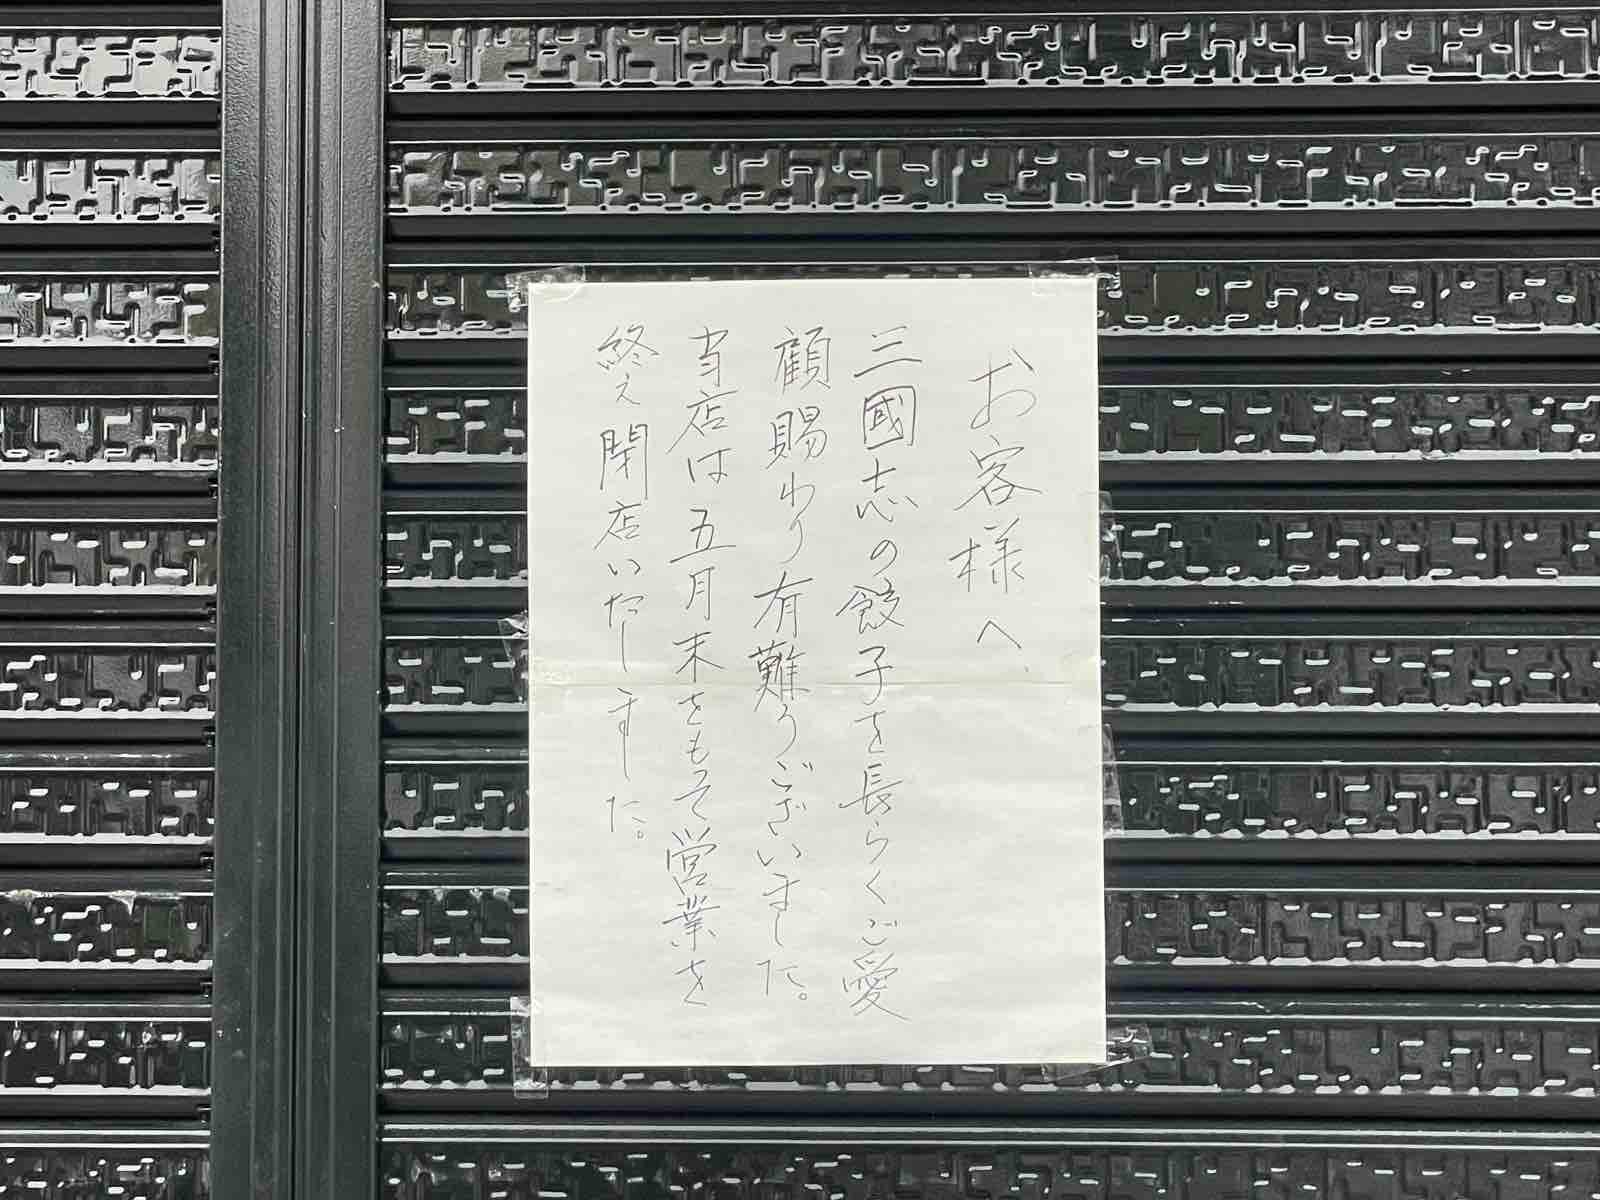 お客様へ
三國志の餃子を長らくご愛
顧賜わり有難うございました。
当店は五月末をもって営業を
終え閉店いたしました。